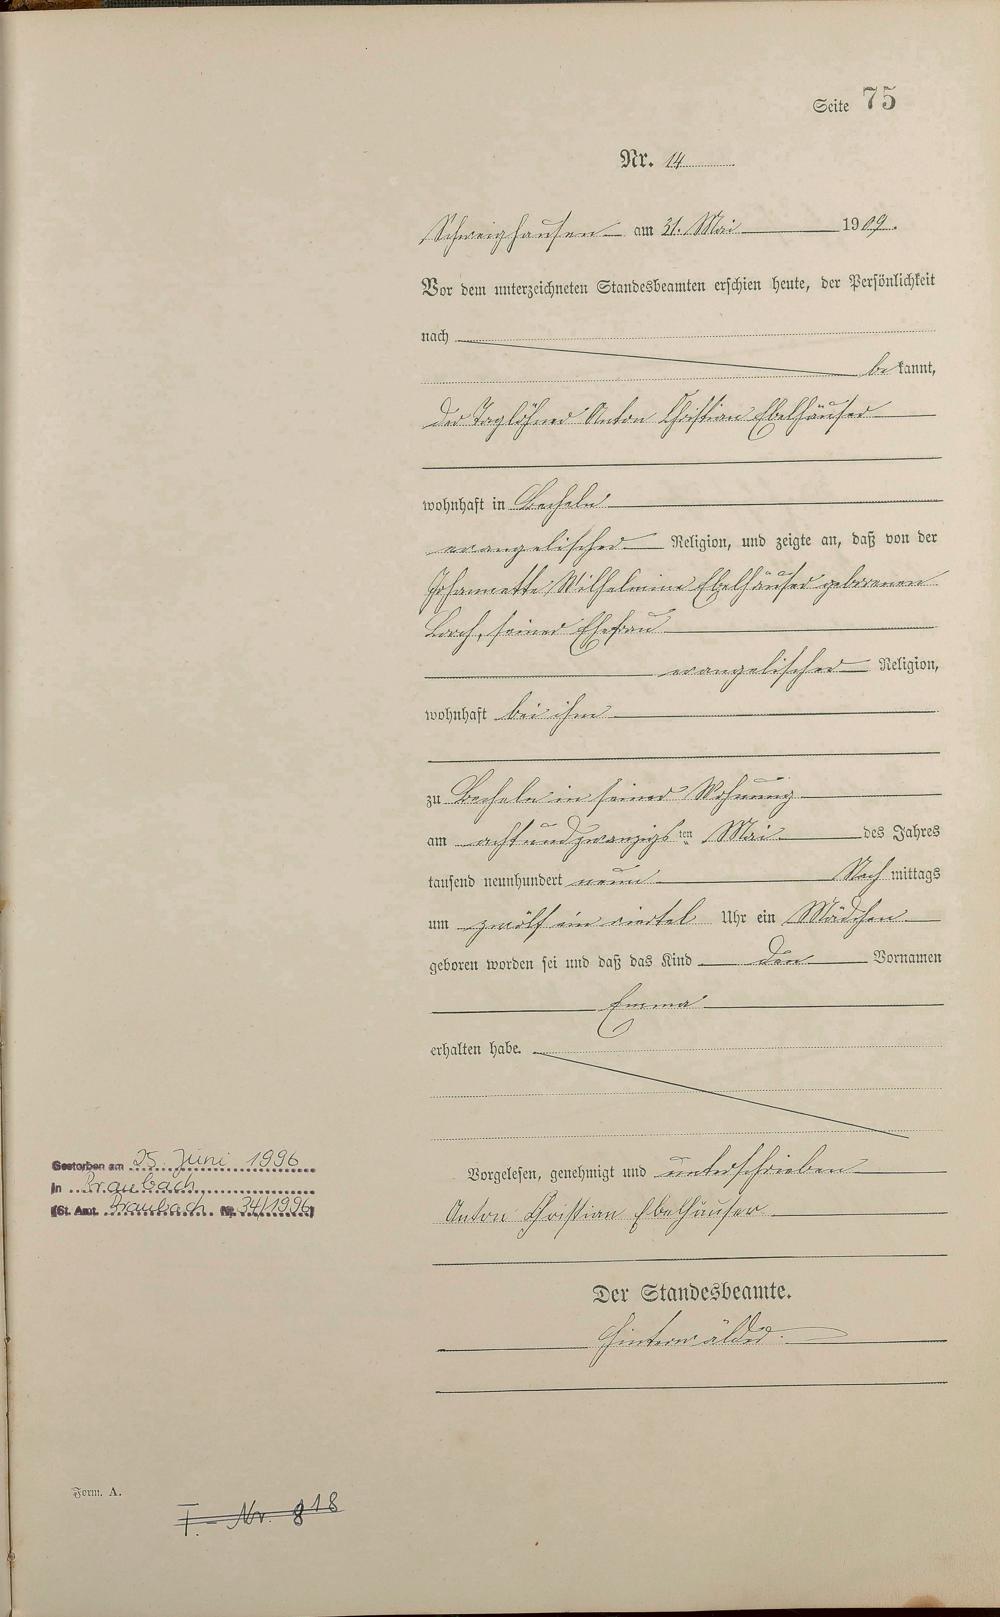 Seite 75
Nr. 14
Schweighausen am 31. Mai 1909.
Vor dem unterzeichneten Standesbeamten erschien heute, der Persönlichkeit
nach
bekannt,
der Taglöhner Anton Christian Ebelhäuser
wohnhaft in Becheln
evangelischer Religion, und zeigte an, daß von der
Johannette Wilhelmine Ebelhäuser geborenen
Loch, seiner Ehefrau
evangelischer Religion,
wohnhaft bei ihm
zu Becheln in seiner Wohnung
am achtundzwanzigsten Mai des Jahres
tausend neunhundert neun Nachmittags
um zwölf ein viertel Uhr ein Mädchen
geboren worden sei und daß das Kind den Vornamen
Emma
erhalten habe.
Vorgelesen, genehmigt und unterschrieben
Anton Christian Ebelhäuser
Der Standesbeamte.
Hinterwälder.
Gestorben am 25. Juni 1996
in Braubach
(St. Amt. Braubach Nr. 34/1996)
Form. A.
I. - Nr. 818